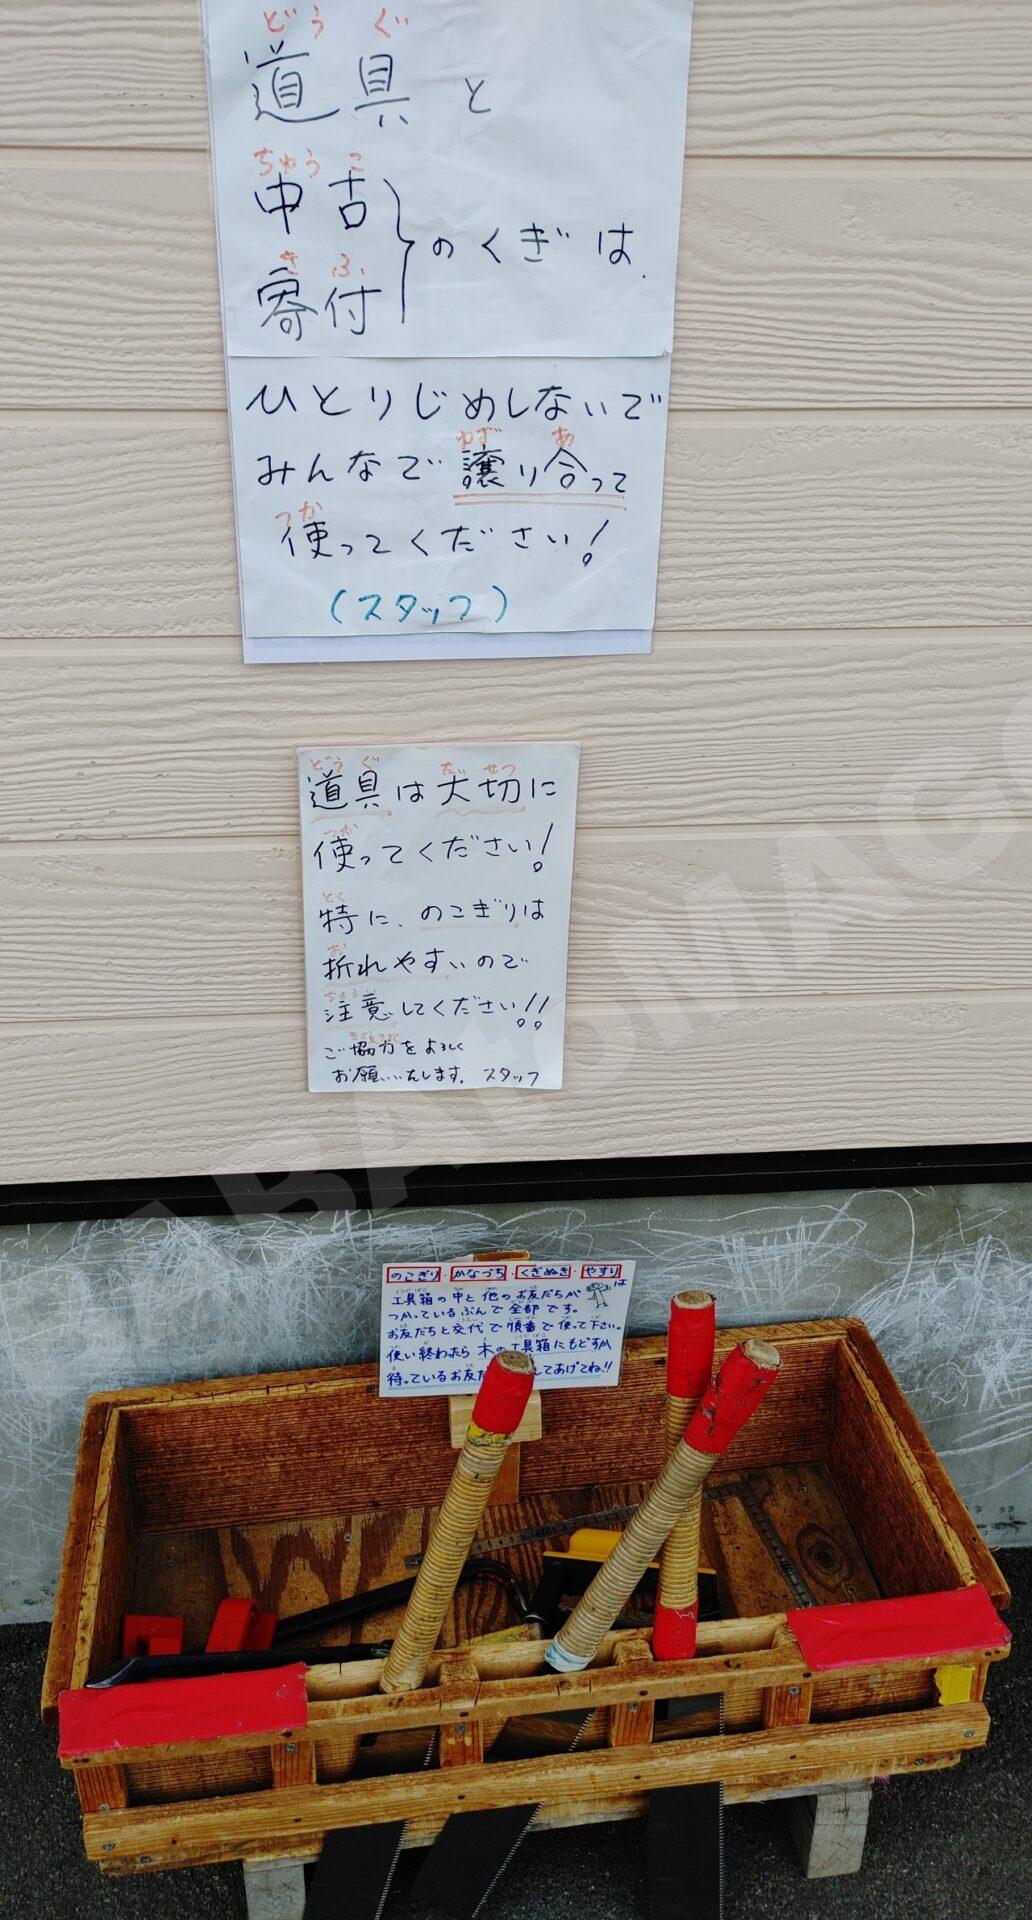 どうぐ
道具と
ちゅうこ
中古
きふ
寄付
のくぎは、
ひとりじめしないで
ゆず あ
みんなで譲り合って
つか
使ってください!
(スタッフ)
どうぐ たいせつ
道具は大切に
つか
使ってください!
とく
特に、のこぎりは
お
折れやすいので
ちゅうい
注意してください!!
きょうりょく
ご協力をよろしく
お願いいたします。スタッフ
のこぎり・かなづち・くぎぬき・やすりは
工具箱の中と他のお友だちが
つかっているぶんで全部です。
お友だちと交代で順番で使って下さい。
使い終わったら木の工具箱にもどすか
待っているお友だ してあげてね!!